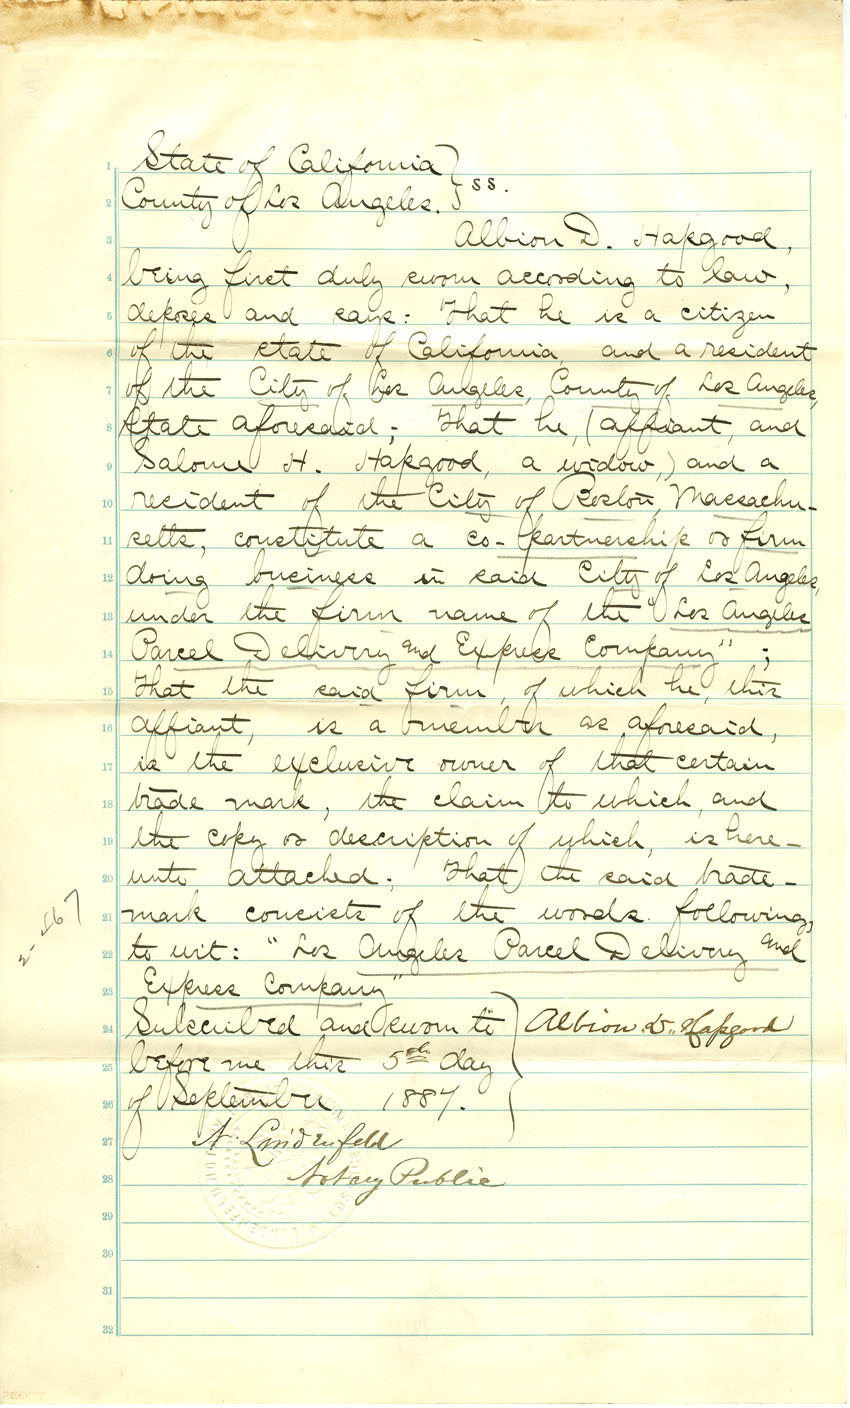 State of California } ss.
County of Los Angeles.
Albion D. Hapgood,
being first duly sworn according to law,
deposes and says: That he is a citizen
of the state of California, and a resident
of the City of Los Angeles, County of Los Angeles,
State aforesaid; That he, (affiant, and
Salome H. Hapgood, a widow,) and a
resident of the City of Boston, Massachu-
setts, constitute a co-partnership or firm
doing business in said City of Los Angeles,
under the firm name of the "Los Angeles
Parcel Delivery and Express Company";
That the said firm, of which he, this
affiant, is a member as aforesaid,
is the exclusive owner of that certain
trade mark, the claim to which, and
the copy or description of which, is here-
unto attached; That the said trade-
mark consists of the words following,
to wit: "Los Angeles Parcel Delivery and
Express Company"
Subscribed and sworn to } Albion D. Hapgood
before me this 5th day
of September 1887.
A. Lindenfeld
Notary Public
1
2
3
4
5
6
7
8
9
10
11
12
13
14
15
16
17
18
19
20
21
22
23
24
25
26
27
28
29
30
31
32